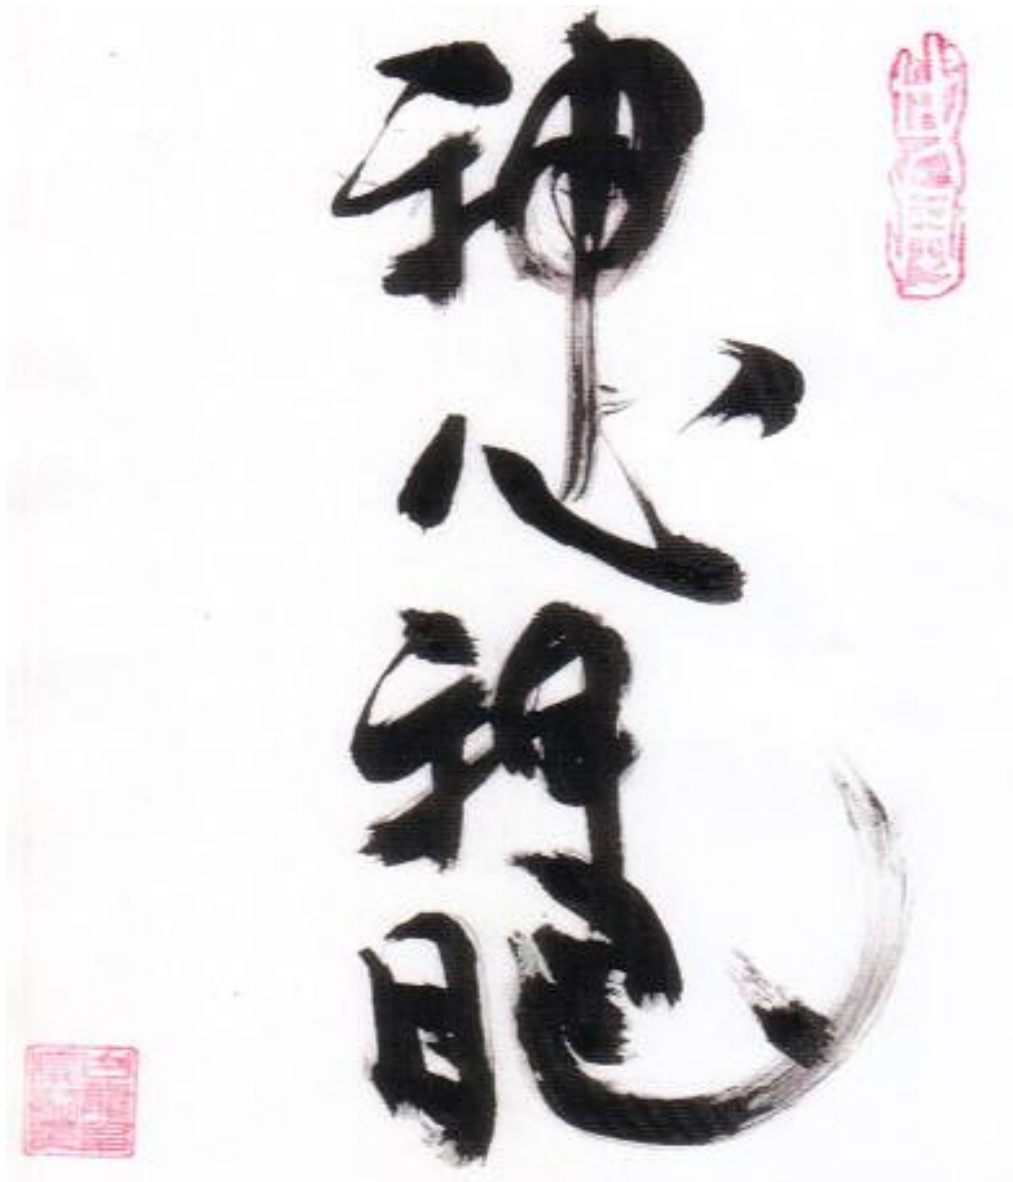 神心神眼